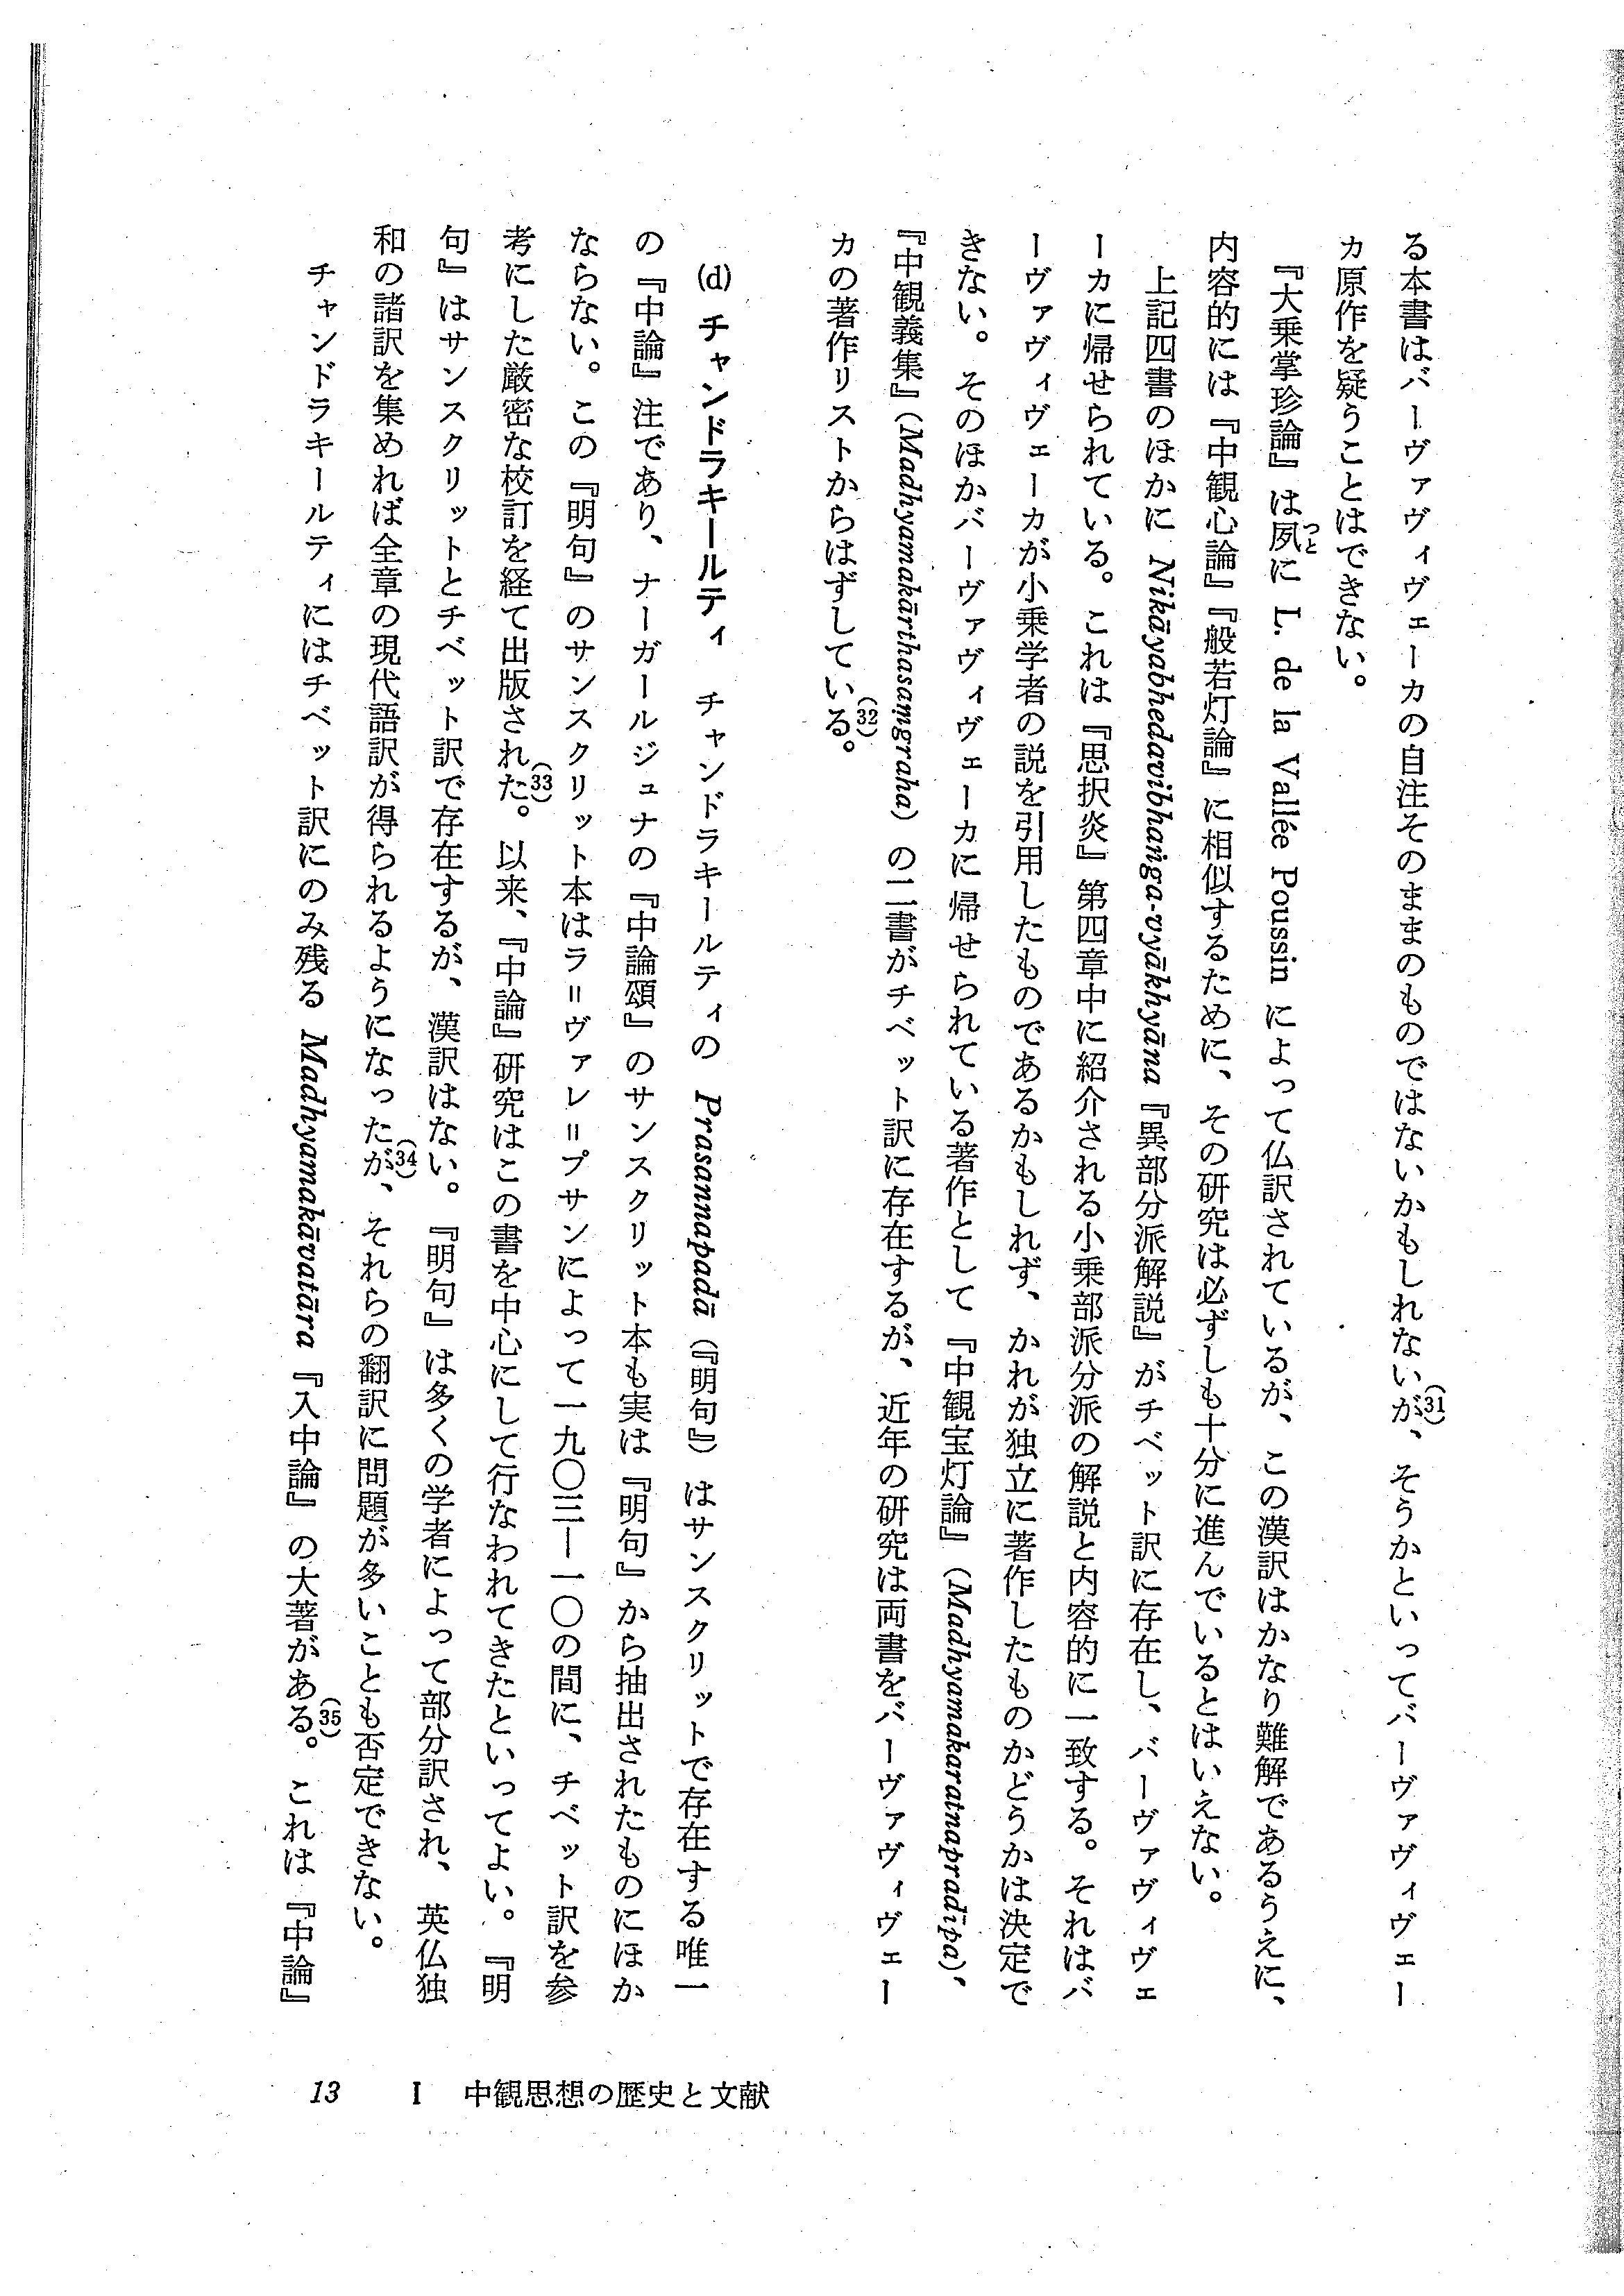 る本書はバーヴァヴィヴェーカの自注そのままのものではないかもしれないが(31)、そうかといってバーヴァヴィヴェー
カ原作を疑うことはできない。
『大乗掌珍論』は夙につと L. de la Vallée Poussin によって仏訳されているが、この漢訳はかなり難解であるうえに、
内容的には『中観心論』『般若灯論』に相似するために、その研究は必ずしも十分に進んでいるとはいえない。
上記四書のほかに Nikāyabhedavibhaṅga-vyākhyāna『異部分派解説』がチベット訳に存在し、バーヴァヴィヴェ
ーカに帰せられている。これは『思択炎』第四章中に紹介される小乗部派分派の解説と内容的に一致する。それはバ
ーヴァヴィヴェーカが小乗学者の説を引用したものであるかもしれず、かれが独立に著作したものかどうかは決定で
きない。そのほかバーヴァヴィヴェーカに帰せられている著作として『中観宝灯論』(Madhyamakaratnapradīpa)、
『中観義集』(Madhyamakārthasaṃgraha) の二書がチベット訳に存在するが、近年の研究は両書をバーヴァヴィヴェー
カの著作リストからはずしている(32)。
(d) チャンドラキールティ チャンドラキールティの Prasannapadā(『明句』)はサンスクリットで存在する唯一
の『中論』注であり、ナーガールジュナの『中論頌』のサンスクリット本も実は『明句』から抽出されたものにほか
ならない。この『明句』のサンスクリット本はラ=ヴァレ=プサンによって一九〇三―一〇の間に、チベット訳を参
考にした厳密な校訂を経て出版された(33)。以来、『中論』研究はこの書を中心にして行なわれてきたといってよい。『明
句』はサンスクリットとチベット訳で存在するが、漢訳はない。『明句』は多くの学者によって部分訳され、英仏独
和の諸訳を集めれば全章の現代語訳が得られるようになったが(34)、それらの翻訳に問題が多いことも否定できない。
チャンドラキールティにはチベット訳にのみ残る Madhyamakāvatāra『入中論』の大著がある(35)。これは『中論』
13 I 中観思想の歴史と文献